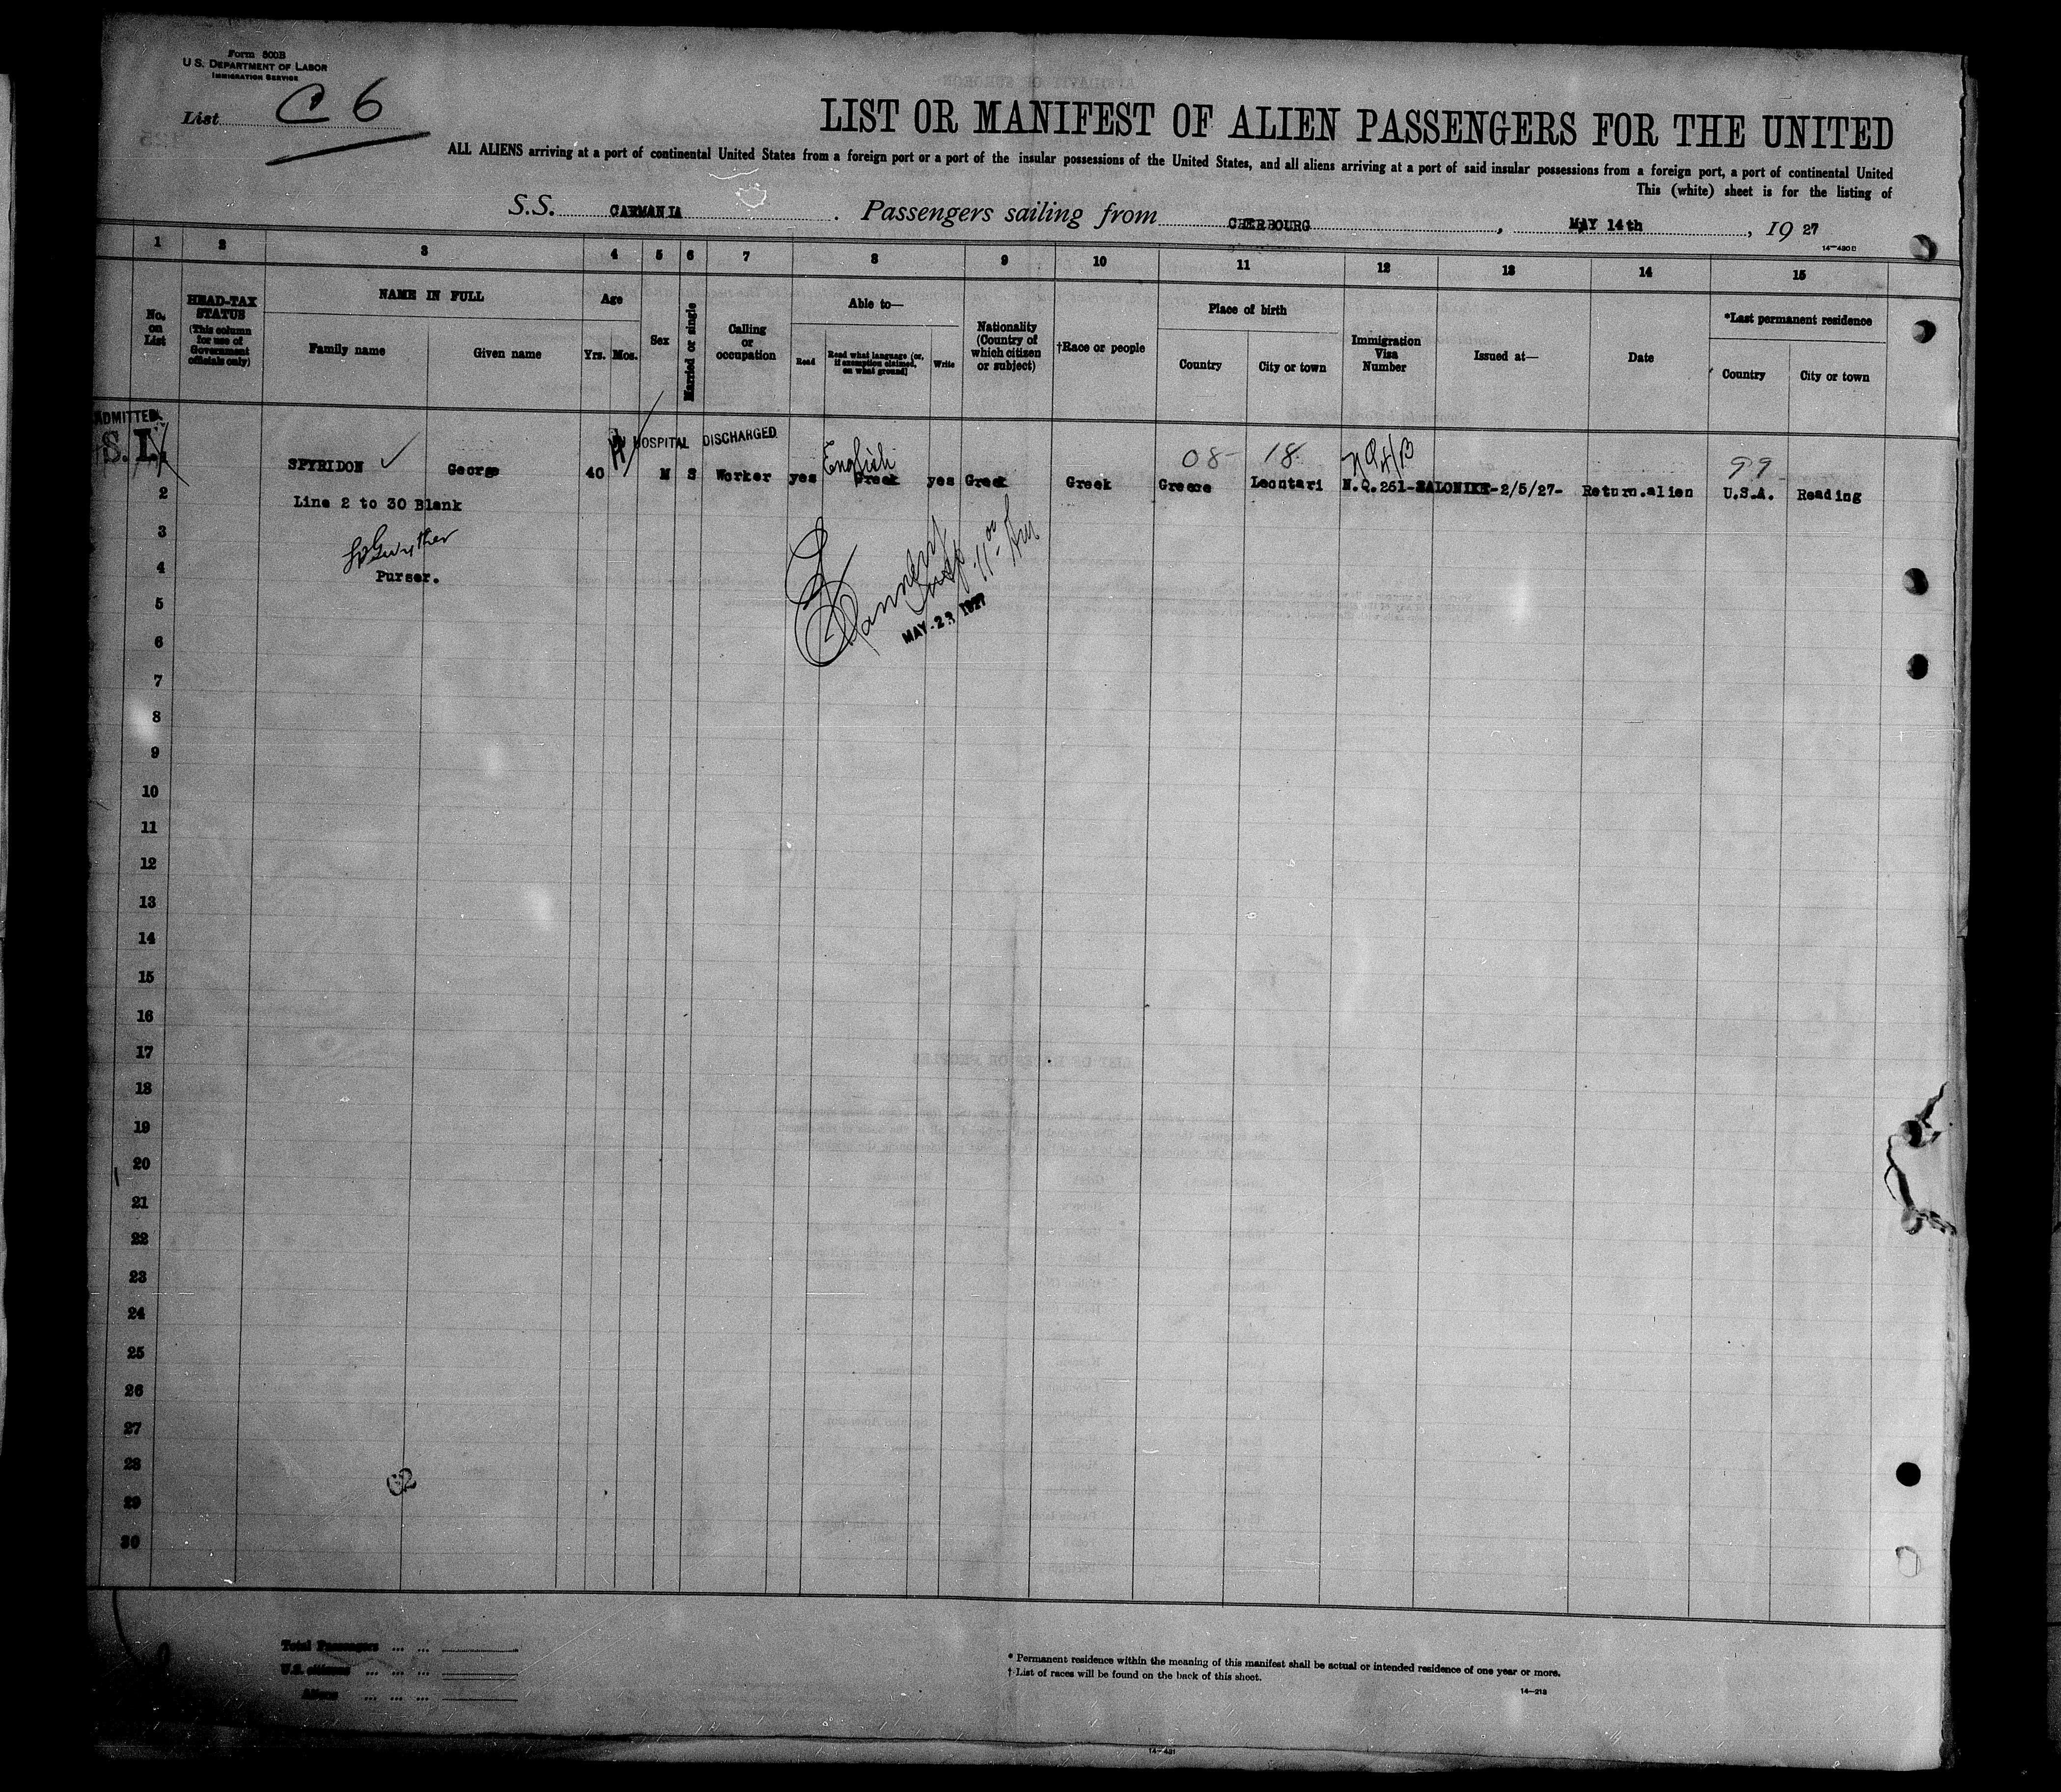 Form 500B
U.S. DEPARTMENT OF LABOR
IMMIGRATION SERVICE
List C 6
LIST OR MANIFEST OF ALIEN PASSENGERS FOR THE UNITED
ALL ALIENS arriving at a port of continental United States from a foreign port or a port of the insular possessions of the United States, and all aliens arriving at a port of said insular possessions from a foreign port, a port of continental United
This (white) sheet is for the listing of
S.S. CARMANIA. Passengers sailing from CHERBOURG, MAY 14th, 19 27
14-420 B
1 2 3 4 5 6 7 8 9 10 11 12 13 14 15
No. on List
HEAD-TAX STATUS (This column for use of Government officials only)
NAME IN FULL
Family name Given name
Age
Yrs. Mos.
Sex
Married or single
Calling or occupation
Able to—
Read
Read what language [or, if exemption claimed, on what ground]
Write
Nationality (Country of which citizen or subject)
†Race or people
Place of birth
Country City or town
Immigration Visa Number
Issued at—
Date
*Last permanent residence
Country City or town
ADMITTED
S.I. HOSPITAL DISCHARGED
English 08- 18 99
SPYRIDON ✓ George 40 M S Worker yes Greek yes Greek Greek Greece Leontari N.Q.251-SALONIKI-2/5/27- Return.alien U.S.A. Reading
2 Line 2 to 30 Blank
3
4 Purser.
5 MAY 23 1927
6
7
8
9
10
11
12
13
14
15
16
17
18
19
20
21
22
23
24
25
26
27
28 62
29
30
Total Passengers ... ...
U.S. citizens ... ... ...
Aliens ... ... ...
* Permanent residence within the meaning of this manifest shall be actual or intended residence of one year or more.
† List of races will be found on the back of this sheet.
14-213
14-421